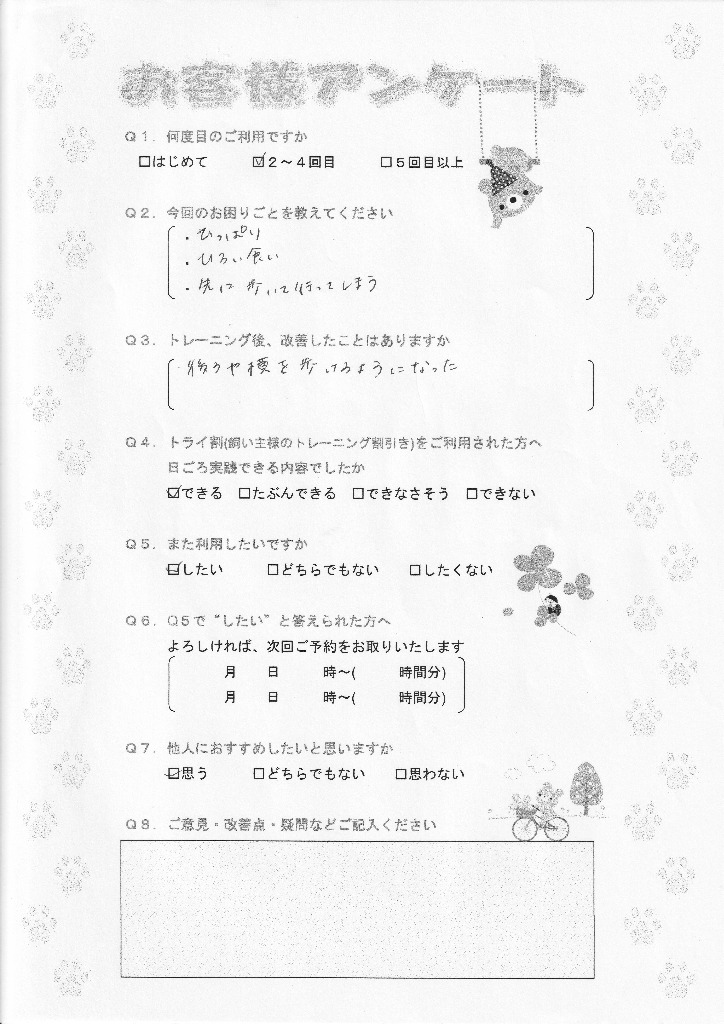 お客様アンケート
Q1．何度目のご利用ですか
□はじめて ☑2～4回目 □5回目以上
Q2．今回のお困りごとを教えてください
・ひっぱり
・ひろい食い
・先に歩いて行ってしまう
Q3．トレーニング後、改善したことはありますか
・後ろや横を歩けるようになった
Q4．トライ割(飼い主様のトレーニング割引き)をご利用された方へ
日ごろ実践できる内容でしたか
☑できる □たぶんできる □できなさそう □できない
Q5．また利用したいですか
☑したい □どちらでもない □したくない
Q6．Q5で“したい”と答えられた方へ
よろしければ、次回ご予約をお取りいたします
月 日 時～( 時間分)
月 日 時～( 時間分)
Q7．他人におすすめしたいと思いますか
☑思う □どちらでもない □思わない
Q8．ご意見・改善点・疑問などご記入ください